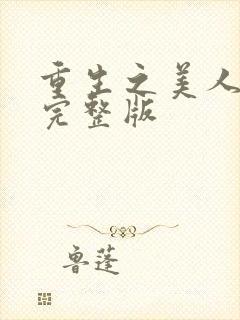 重生之美人
完整版
鲁蓬